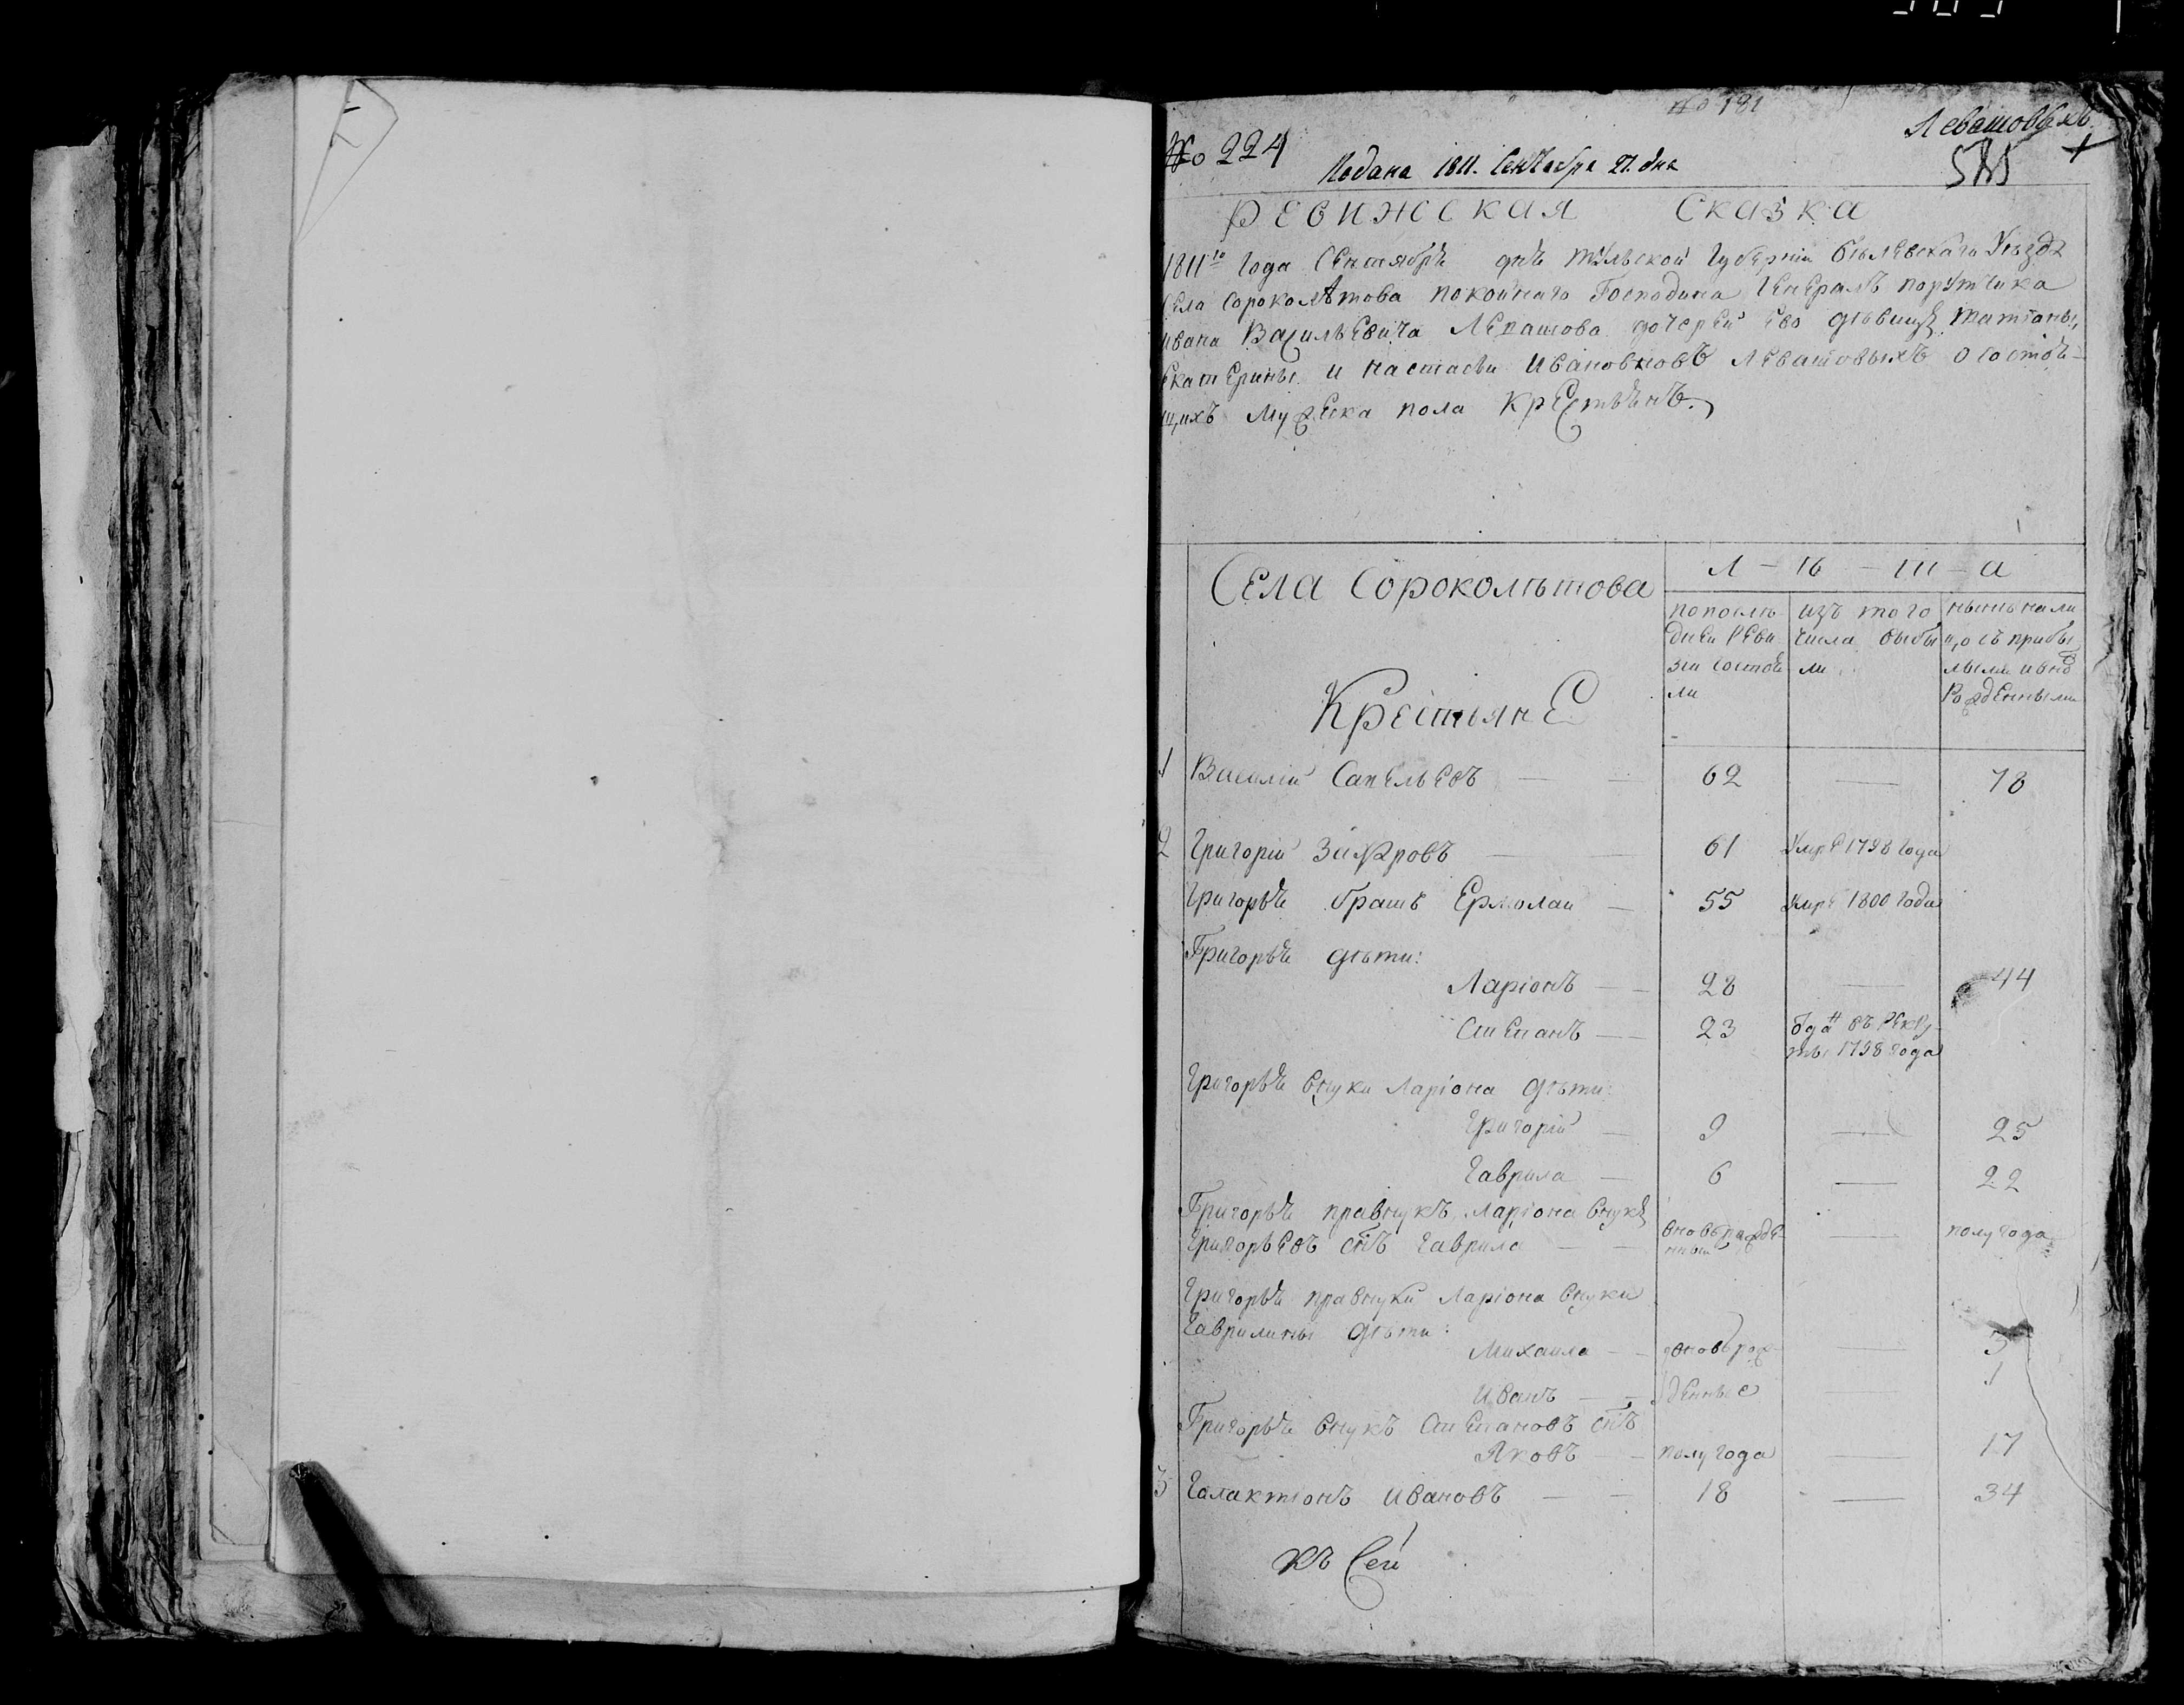 № 181
Левашовыхъ
№ 224
Подана 1811. Сентября 27. дня
РЕВИЖСКАЯ СКАЗКА
1811го Года Сентября дня тульской Губерніи белевскаго Уезда
Села сороколѣтова покойнаго Господина Генералъ порутчика
ивана Васильевича Левашова дочерей ево дѣвицъ татьяны,
Екатерины и настасьи Ивановновъ Левашовыхъ о состоя-
щихъ мужеска пола крестьянъ.
Села Сороколѣтова
Л - Ѣ - Т - А
по послѣ
дней реви
зіи состоя
ли
изъ того
числа выбы
ли
нынѣ на ли
цо съ прибы
лыми и вно
рожденными
Крестьяне
1 Василій Савельевъ — — 62 — 78
2 Григорій Захаровъ — — 61 Умре 1798 года
Григорья братъ Ермолай — 55 умре 1800 года
Григорья дѣти:
Ларіонъ — 28 — 44
Степанъ — 23 Отданъ въ рекру-
ты 1798 года
Григорья внуки Ларіона дѣти:
Григорій — 9 — 25
Гаврила — 6 — 22
Григорья правнукъ, Ларіона внукъ
Григорьевъ снъ Гаврила — — вновьрожде-
нный — полугода
Григорья правнуки Ларіона внуки
Гаврилины дѣти:
Михаила — вновьрож- — 3
Иванъ — денные — 1
Григорья внукъ Степановъ снъ
Яковъ — полугода — 17
3 Галактіонъ Ивановъ — — 18 — 34
Къ Сей